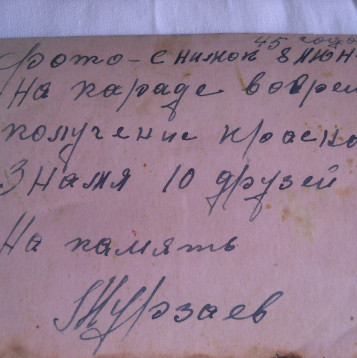 45 года
Фото-снимок 8 июн
На параде во врем
получение красно
Знамя 10 друзей
На память
Мурзаев